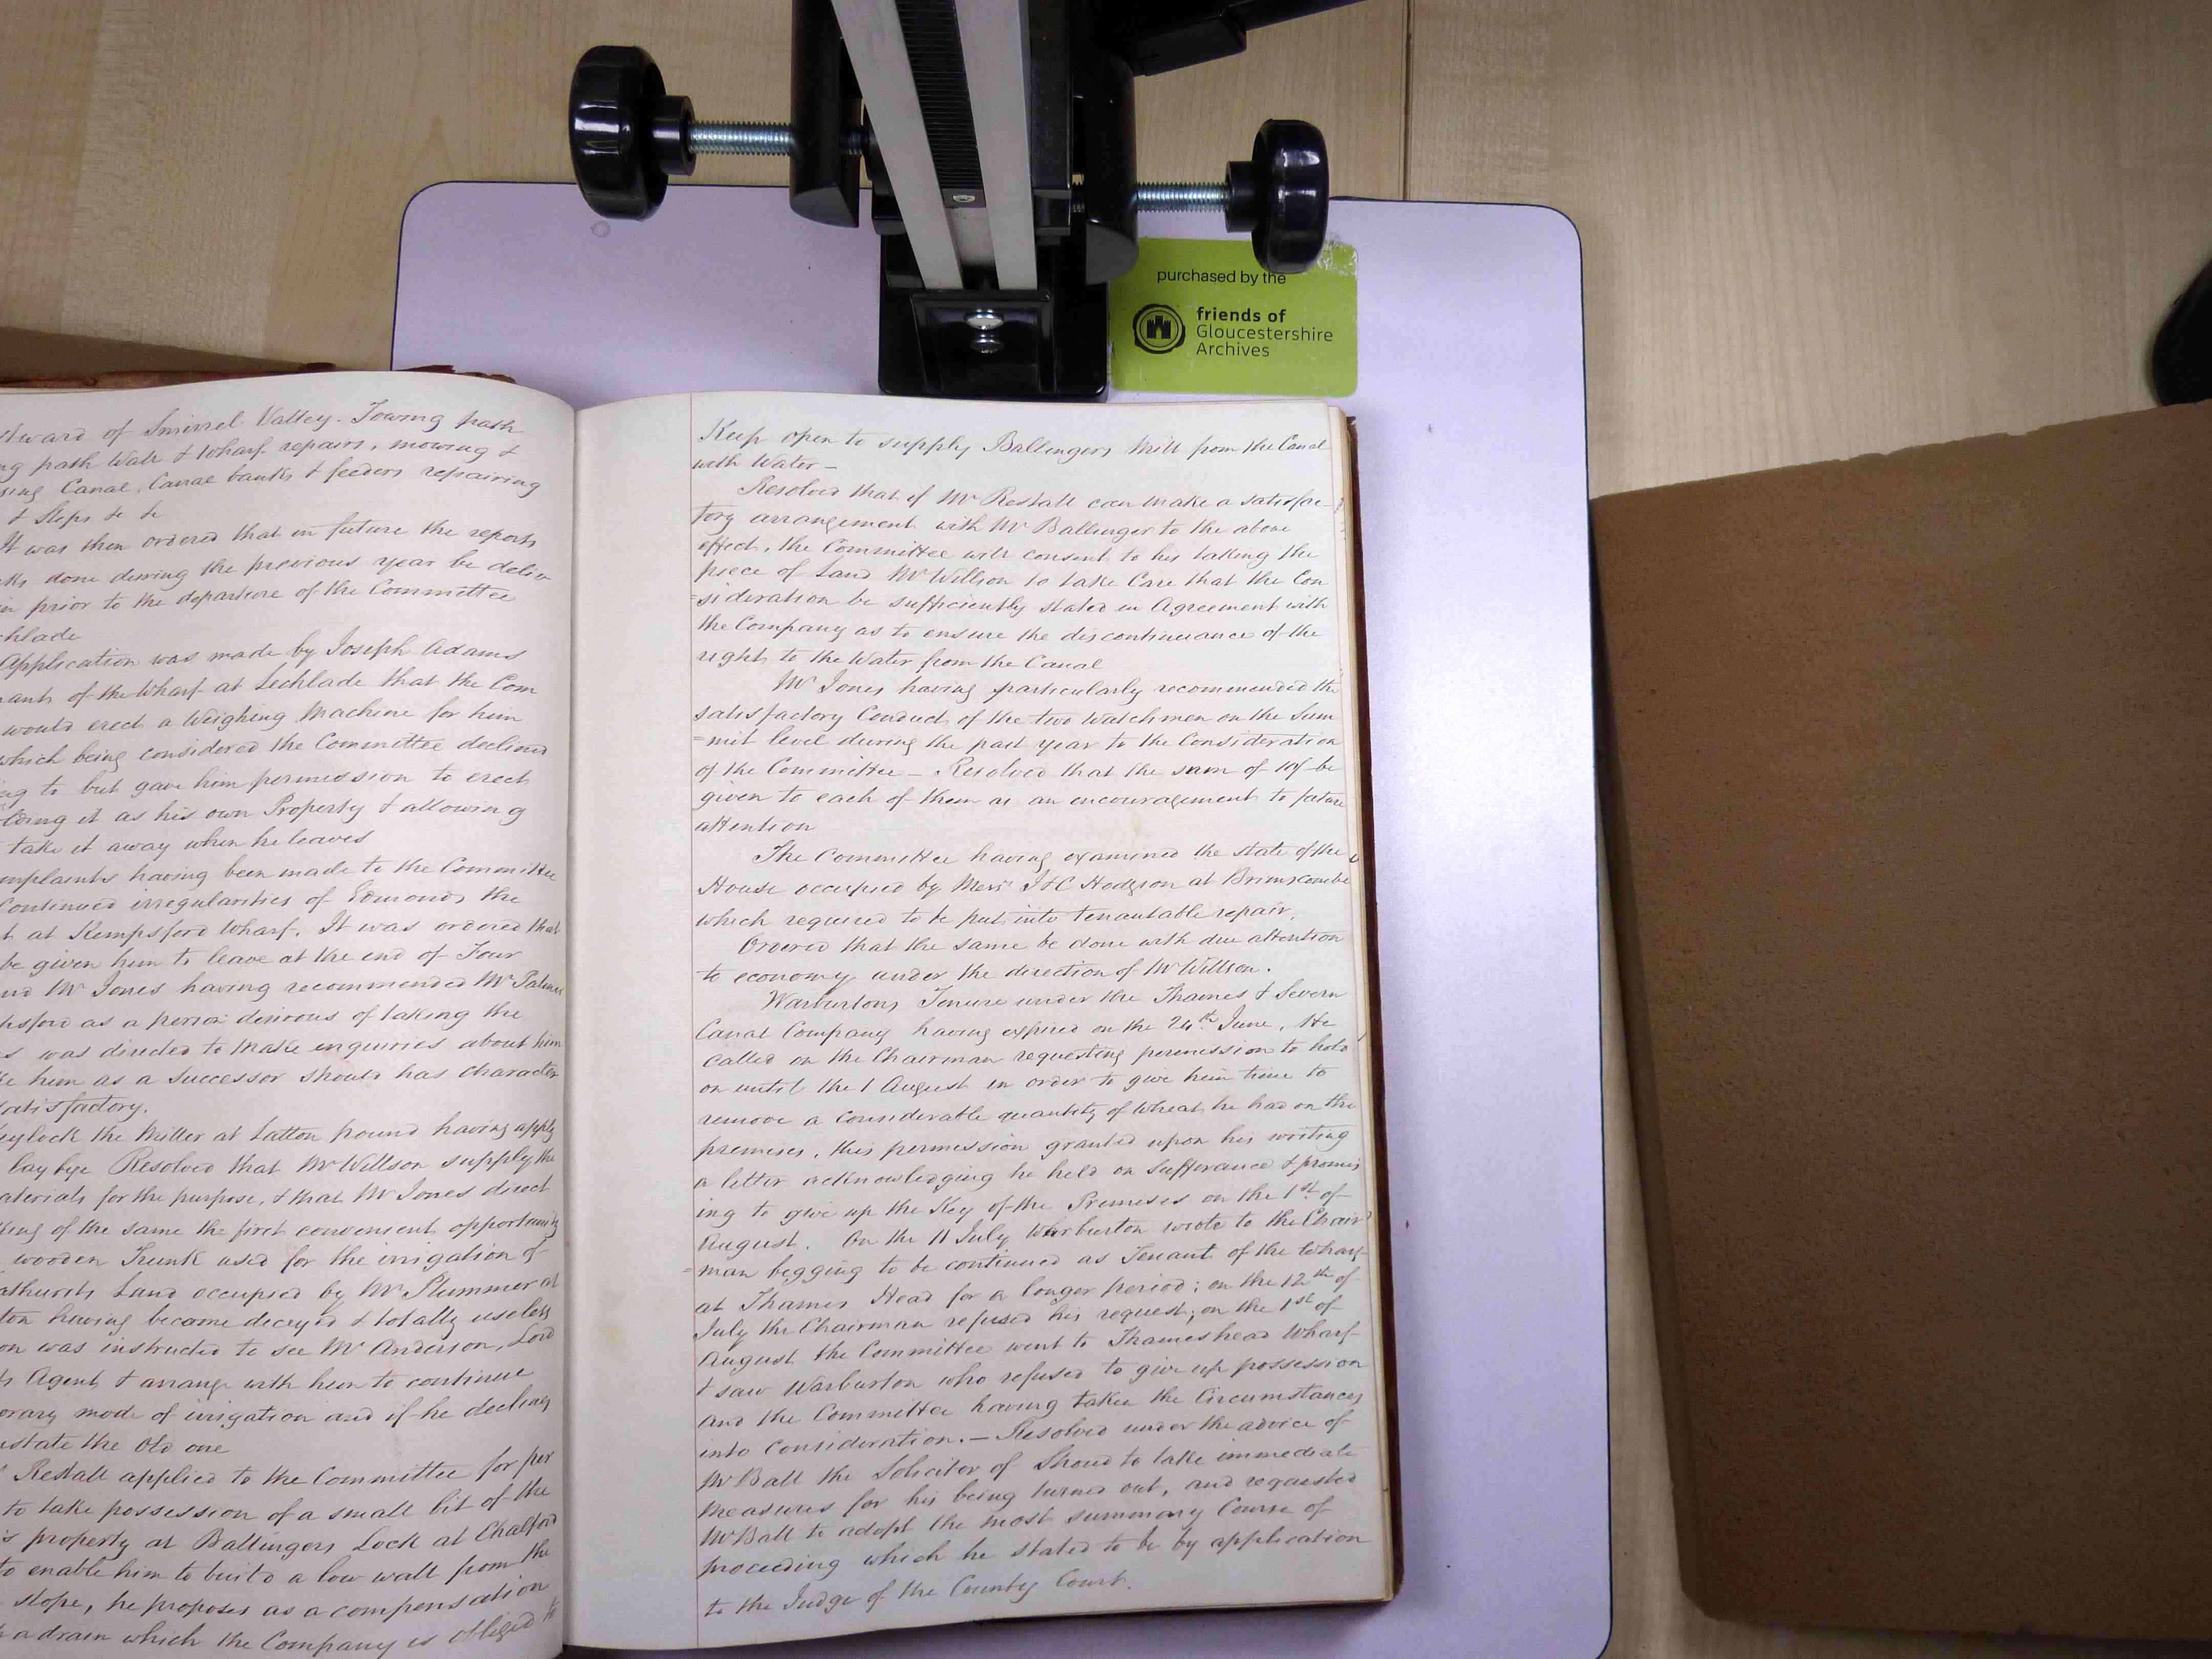 purchased by the
friends of
Gloucestershire
Archives
of Smirrel Valley. Towing path
path Wall & Wharf repairs, mowing &
Canal. Canal banks & feeders repairing
& Stops &c &c
It was then ordered that in future the reports
done during the previous year be deliv
prior to the departure of the Committee
Application was made by Joseph Adams
of the Wharf at Lechlade that the Com
would erect a Weighing Machine for him
which being considered the Committee declined
to but gave him permission to erect
it as his own Property & allowing
take it away when he leaves
having been made to the Committee
Continued irregularities of Edmonds the
at Kempsford Wharf. It was ordered that
be given him to leave at the end of Four
Mr Jones having recommended Mr Palmer
as a person desirous of taking the
was directed to make enquiries about him
him as a Successor should his character
satisfactory.
the Miller at Latton pound having apply
lay bye Resolved that Mr Willson supply the
for the purpose, & that Mr Jones direct
of the same the first convenient opportunity
wooden Trunk used for the irrigation of
Land occupied by Mr Plummer at
having become deceyed & totally useless
was instructed to see Mr Anderson, Lord
Agent & arrange with him to continue
mode of irrigation and if he declines
the Old one
Restall applied to the Committee for per
to take possession of a small bit of the
property at Ballingers Lock at Chalford
to enable him to build a low wall from the
slope, he proposes as a compensation
a drain which the Company is obliged to
Keep open to supply Ballingers Mill from the Canal
with Water —
Resolved that if Mr Restall can make a satisfac-
tory arrangement with Mr Ballinger to the above
effect, the Committee will consent to his taking the
piece of Land Mr Willson to take Care that the Con
=sideration be sufficiently stated in Agreement with
the Company as to ensure the discontinuance of the
right to the Water from the Canal
Mr Jones having particularly recommended the
satisfactory Conduct of the two Watchmen on the Sum
=mit level during the past year to the Consideration
of the Committee — Resolved that the sum of 10/- be
given to each of them as an encouragement to future
attention
The Committee having examined the state of the
House occupied by Messrs J & C Hodgson at Brimscombe
which required to be put into tenantable repair.
Ordered that the same be done with due attention
to economy under the direction of Mr Willson.
Warburtons Tenure under the Thames & Severn
Canal Company having expired on the 24th June, He
called on the Chairman requesting permission to hold
on until the 1 August in order to give him time to
remove a considerable quantity of Wheat he had on the
premises, this permission granted upon his writing
a letter acknowledging he held on sufferance & promis
ing to give up the Key of the Premises on the 1st of
August. On the 11 July Warburton wrote to the Chair
=man begging to be continued as Tenant of the Wharf
at Thames Head for a longer period; on the 12th of
July the Chairman refused his request; on the 1st of
August the Committee went to Thameshead Wharf
& saw Warburton who refused to give up possession
and the Committee having taken the Circumstances
into Consideration. — Resolved under the advice of
Mr Ball the Solicitor of Stroud to take immediate
measures for his being turned out, and requested
Mr Ball to adopt the most summary Course of
proceeding which he stated to be by application
to the Judge of the County Court.